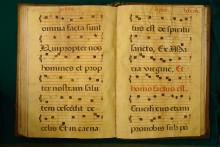 omnia facta sunt
Qui propter nos
homines et prop
ter nostram salu
tem descēdit de
Et in carna
tus est de spiritu
sancto, Ex Ma
ria virgine, Et
homo factus est.
Crucifixus etiam
pro nobis sub po